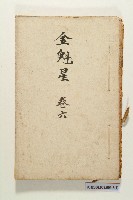 金魁星
卷六